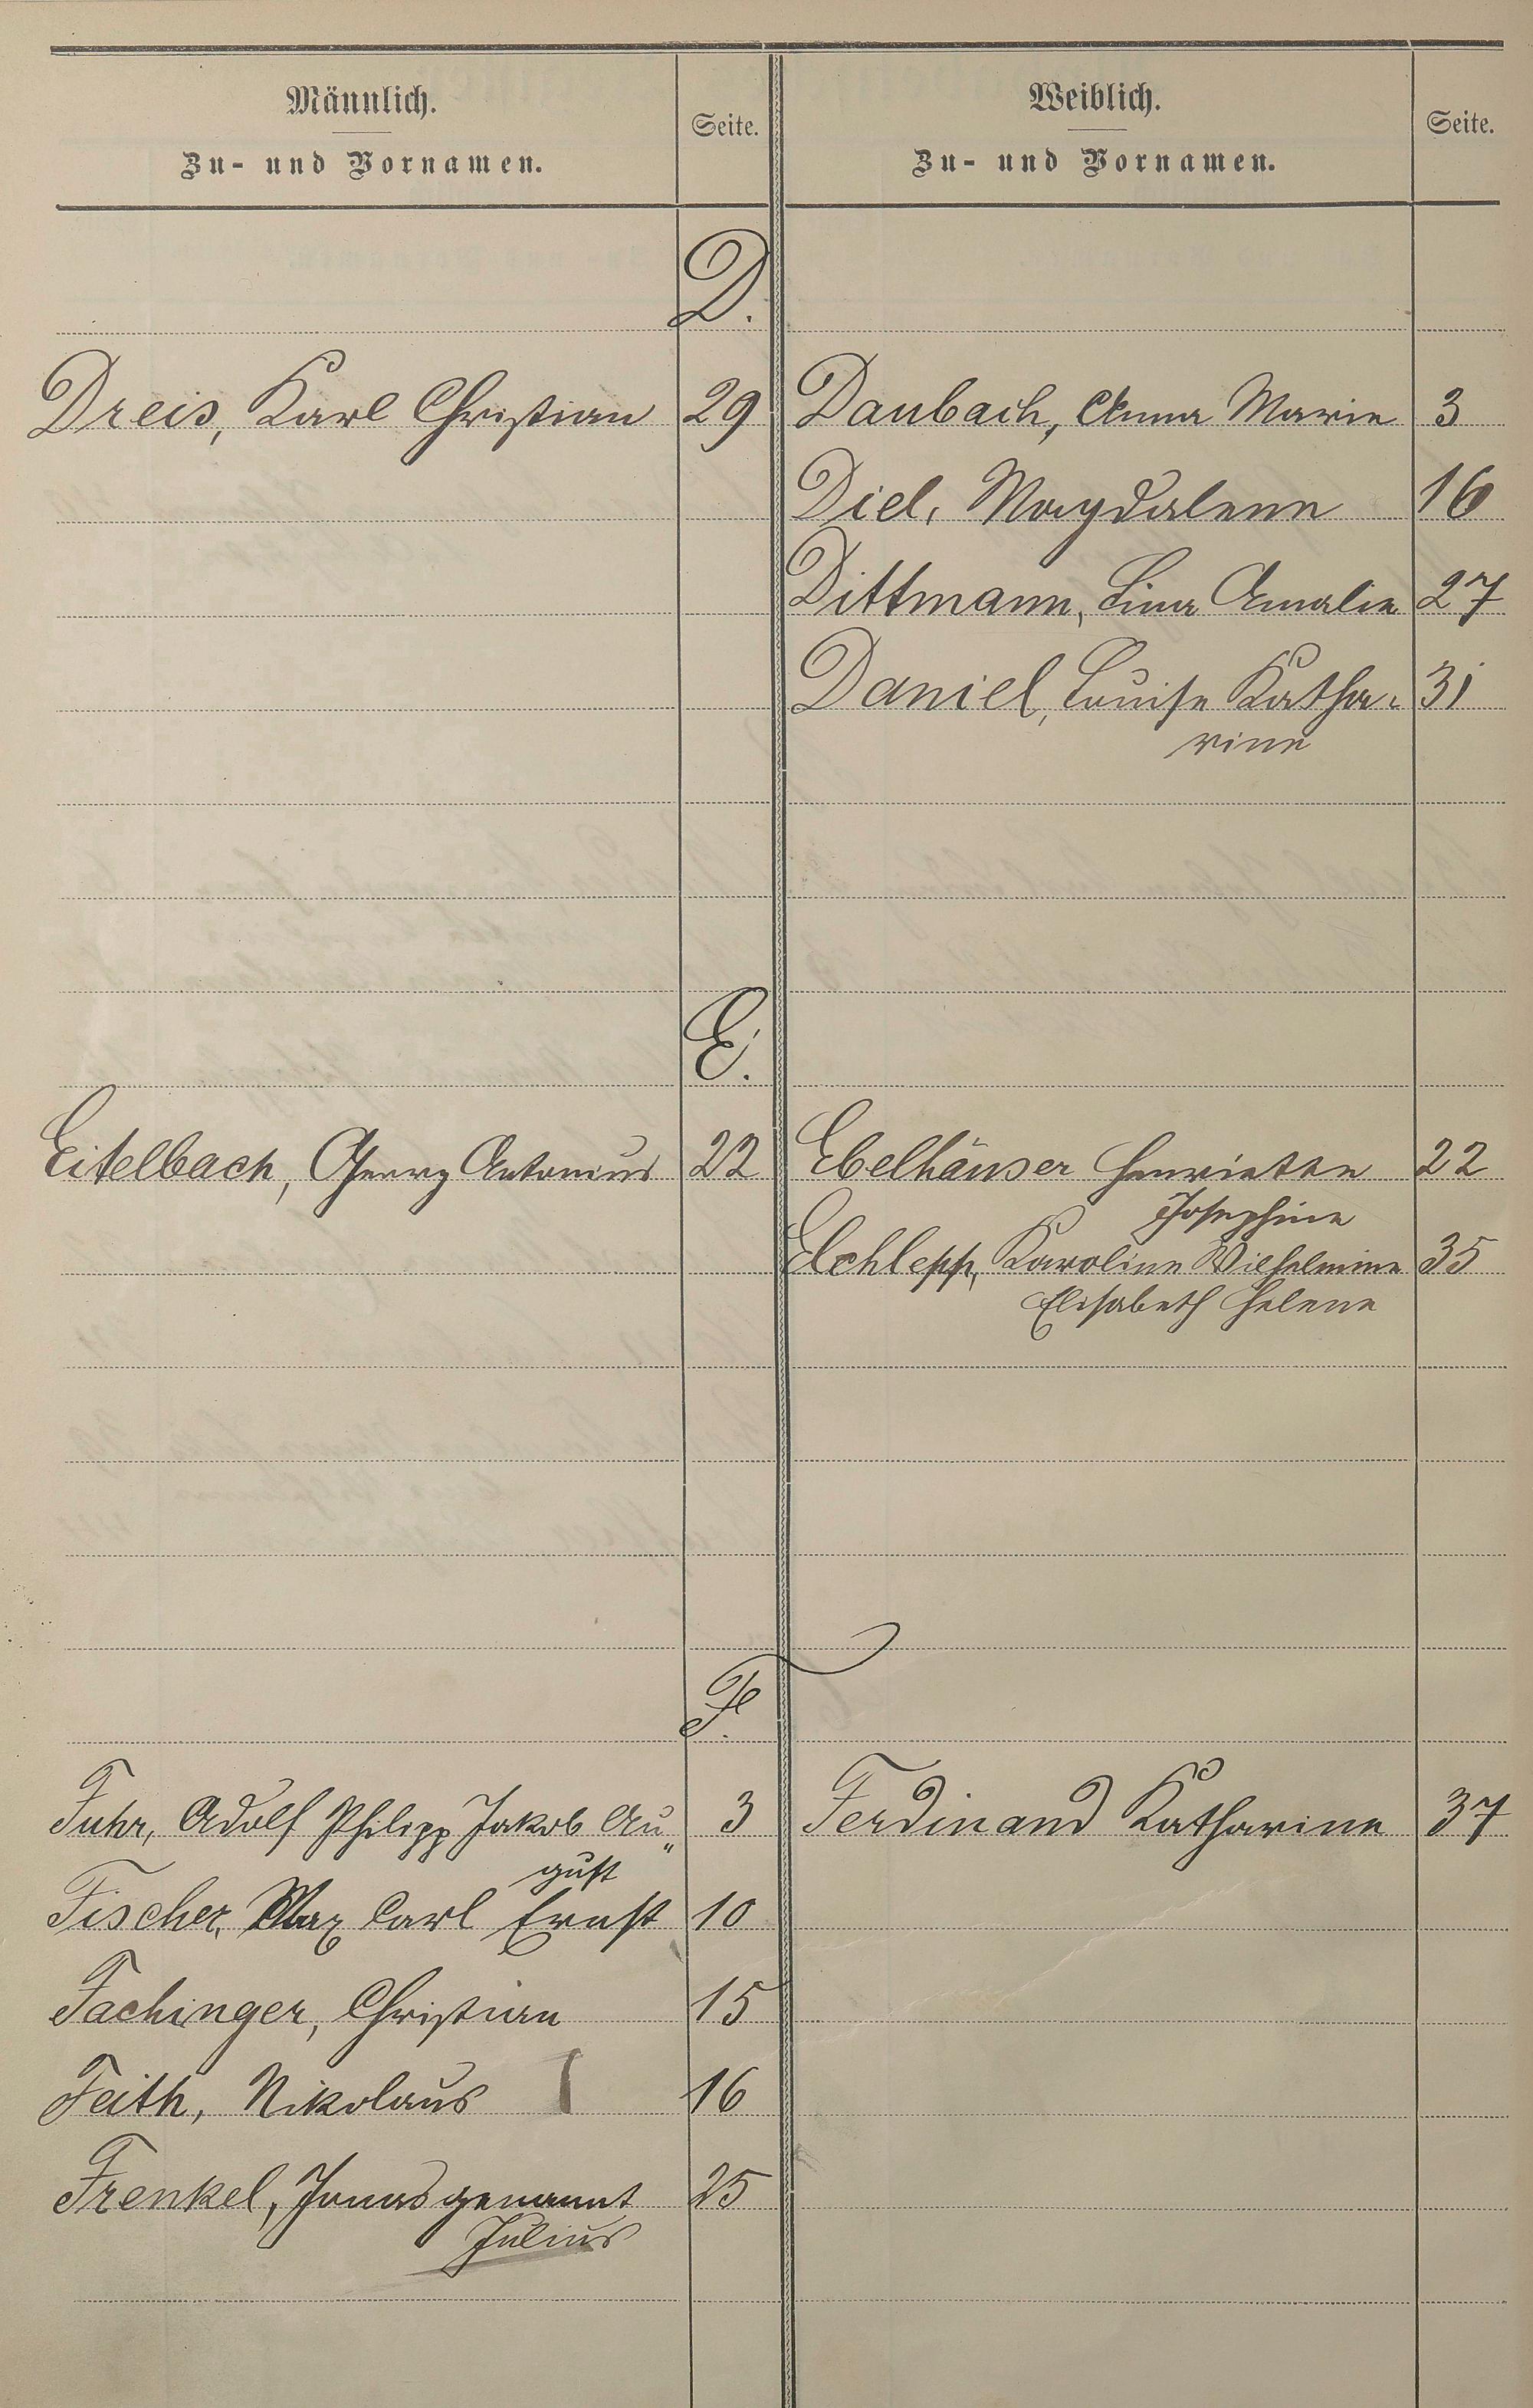 Männlich.
Zu- und Vornamen.
Seite.
Weiblich.
Zu- und Vornamen.
Seite.
D.
Dreis, Karl Christian 29 Daubach, Anna Marie 3
Diel, Magdalene 16
Dittmann, Lina Amalie 27
Daniel, Louise Katha-
rine 31
E.
Eitelbach, Georg Antonius 22 Ebelhäuser Henriette 22
Josephine
Karoline Wilhelmine 35
Elisabeth Helene
F.
Fuhr, Adolf Philipp Jakob Au„ 3 Ferdinand Katharine 37
gust
Fischer, Max Carl Ernst 10
Fachinger, Christian 15
Feith, Nikolaus 16
Frenkel, Jonas genannt 25
Julius